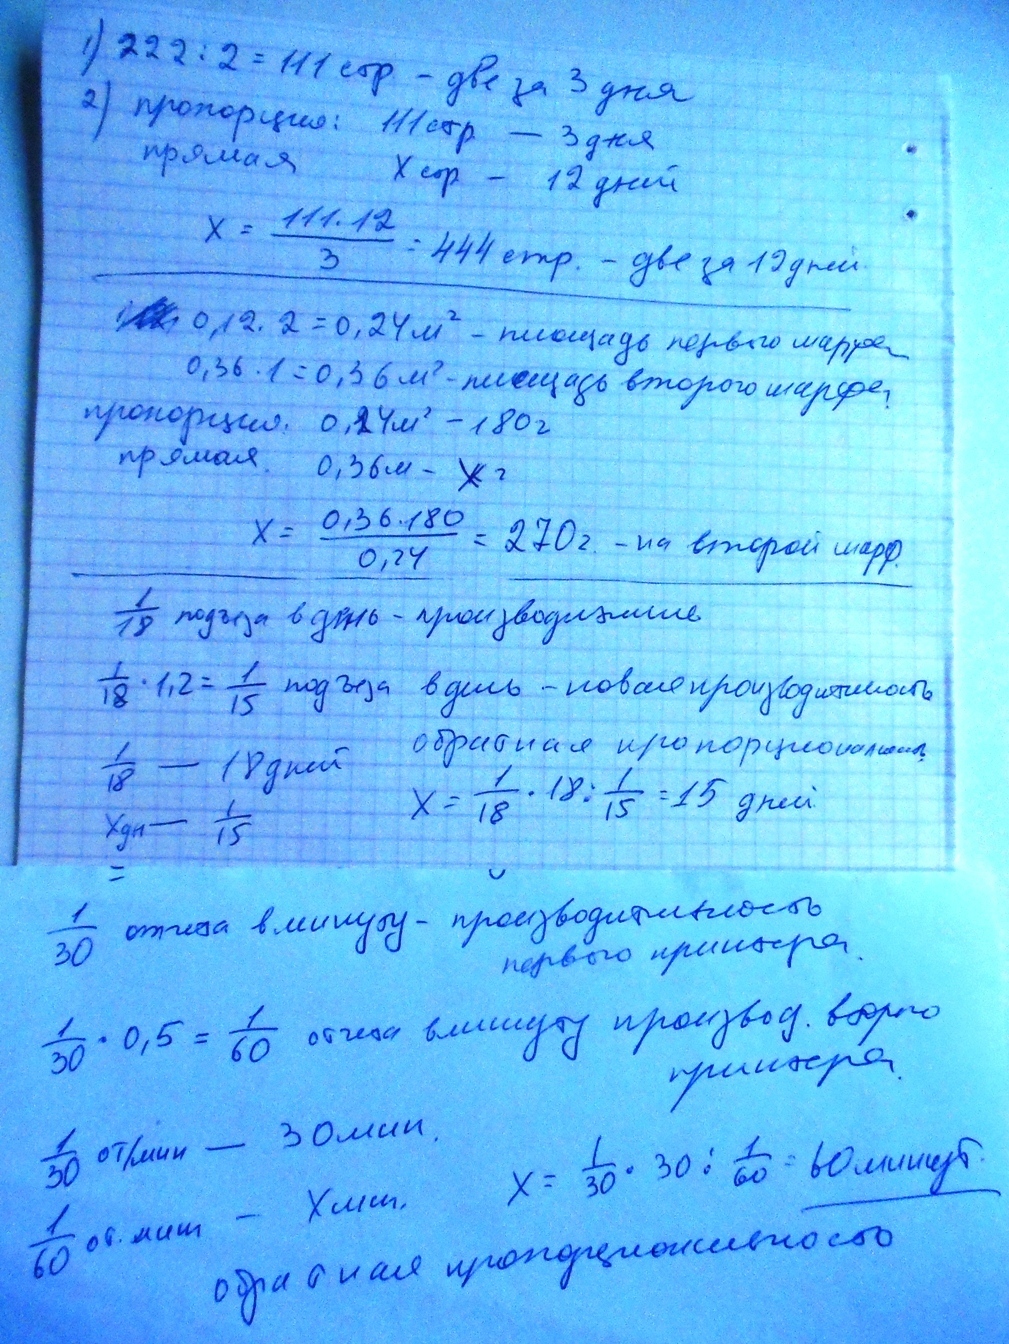 1) 222 : 2 = 111 стр - две за 3 дня
2) пропорция: 111 стр — 3 дня
прямая х стр - 12 дней
X = 111·12/3 = 444 стр. - две за 12 дней
0,12·2 = 0,24 м² - площадь первого шарфа
0,36·1 = 0,36 м² - площадь второго шарфа
пропорция. 0,24 м² - 180 г
прямая. 0,36 м - X г
X = 0,36·180/0,24 = 270 г. - на второй шарф.
1/18 подъезда в день -
1/18 · 1,2 = 1/15 подъезда в день - новая производительность
1/18 — 18 дней обратная пропорциональность
X дн — 1/15 X = 1/18 · 18 : 1/15 = 15 дней
=
1/30 отчета в минуту - производительность
первого принтера.
1/30 · 0,5 = 1/60 отчета в минуту производ. второго
принтера.
1/30 от/мин — 30 мин.
1/60 от. мин - X мин. X = 1/30 · 30 : 1/60 = 60 минут.
обратная пропорциональность